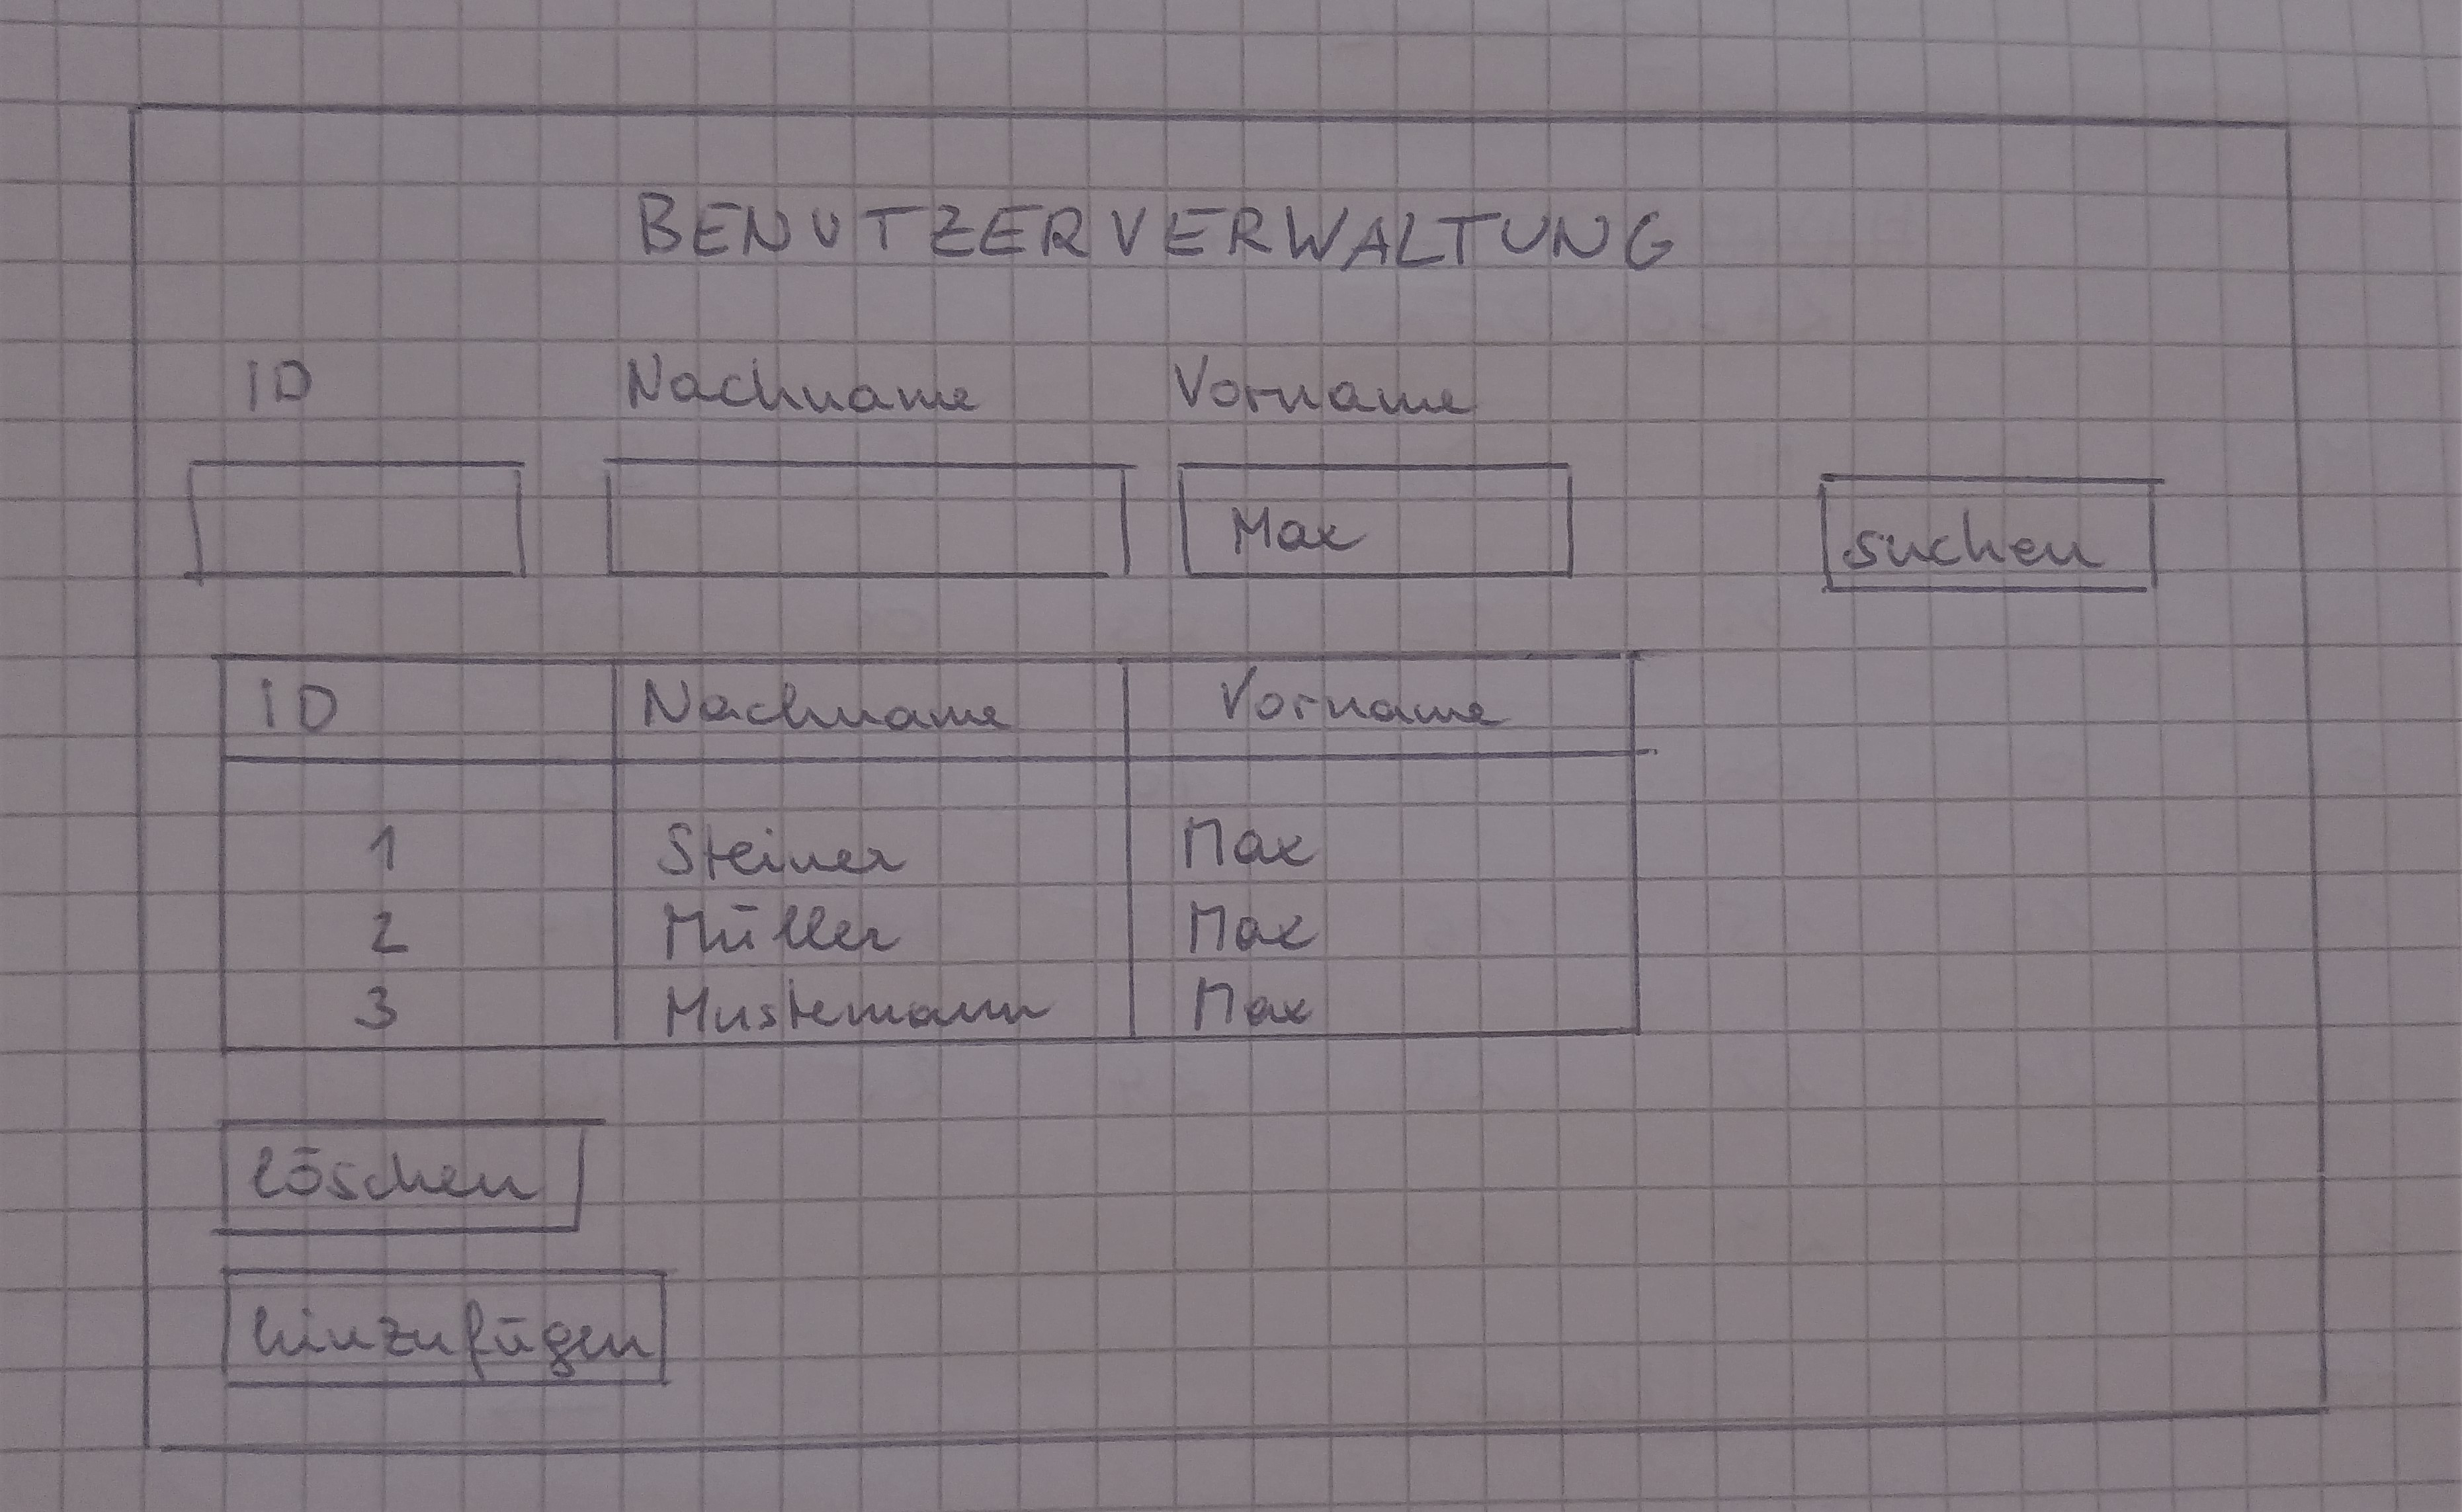 BENUTZERVERWALTUNG
ID Nachname Vorname
Max suchen
ID Nachname Vorname
1 Steiner Max
2 Müller Max
3 Mustemann Max
löschen
hinzufügen